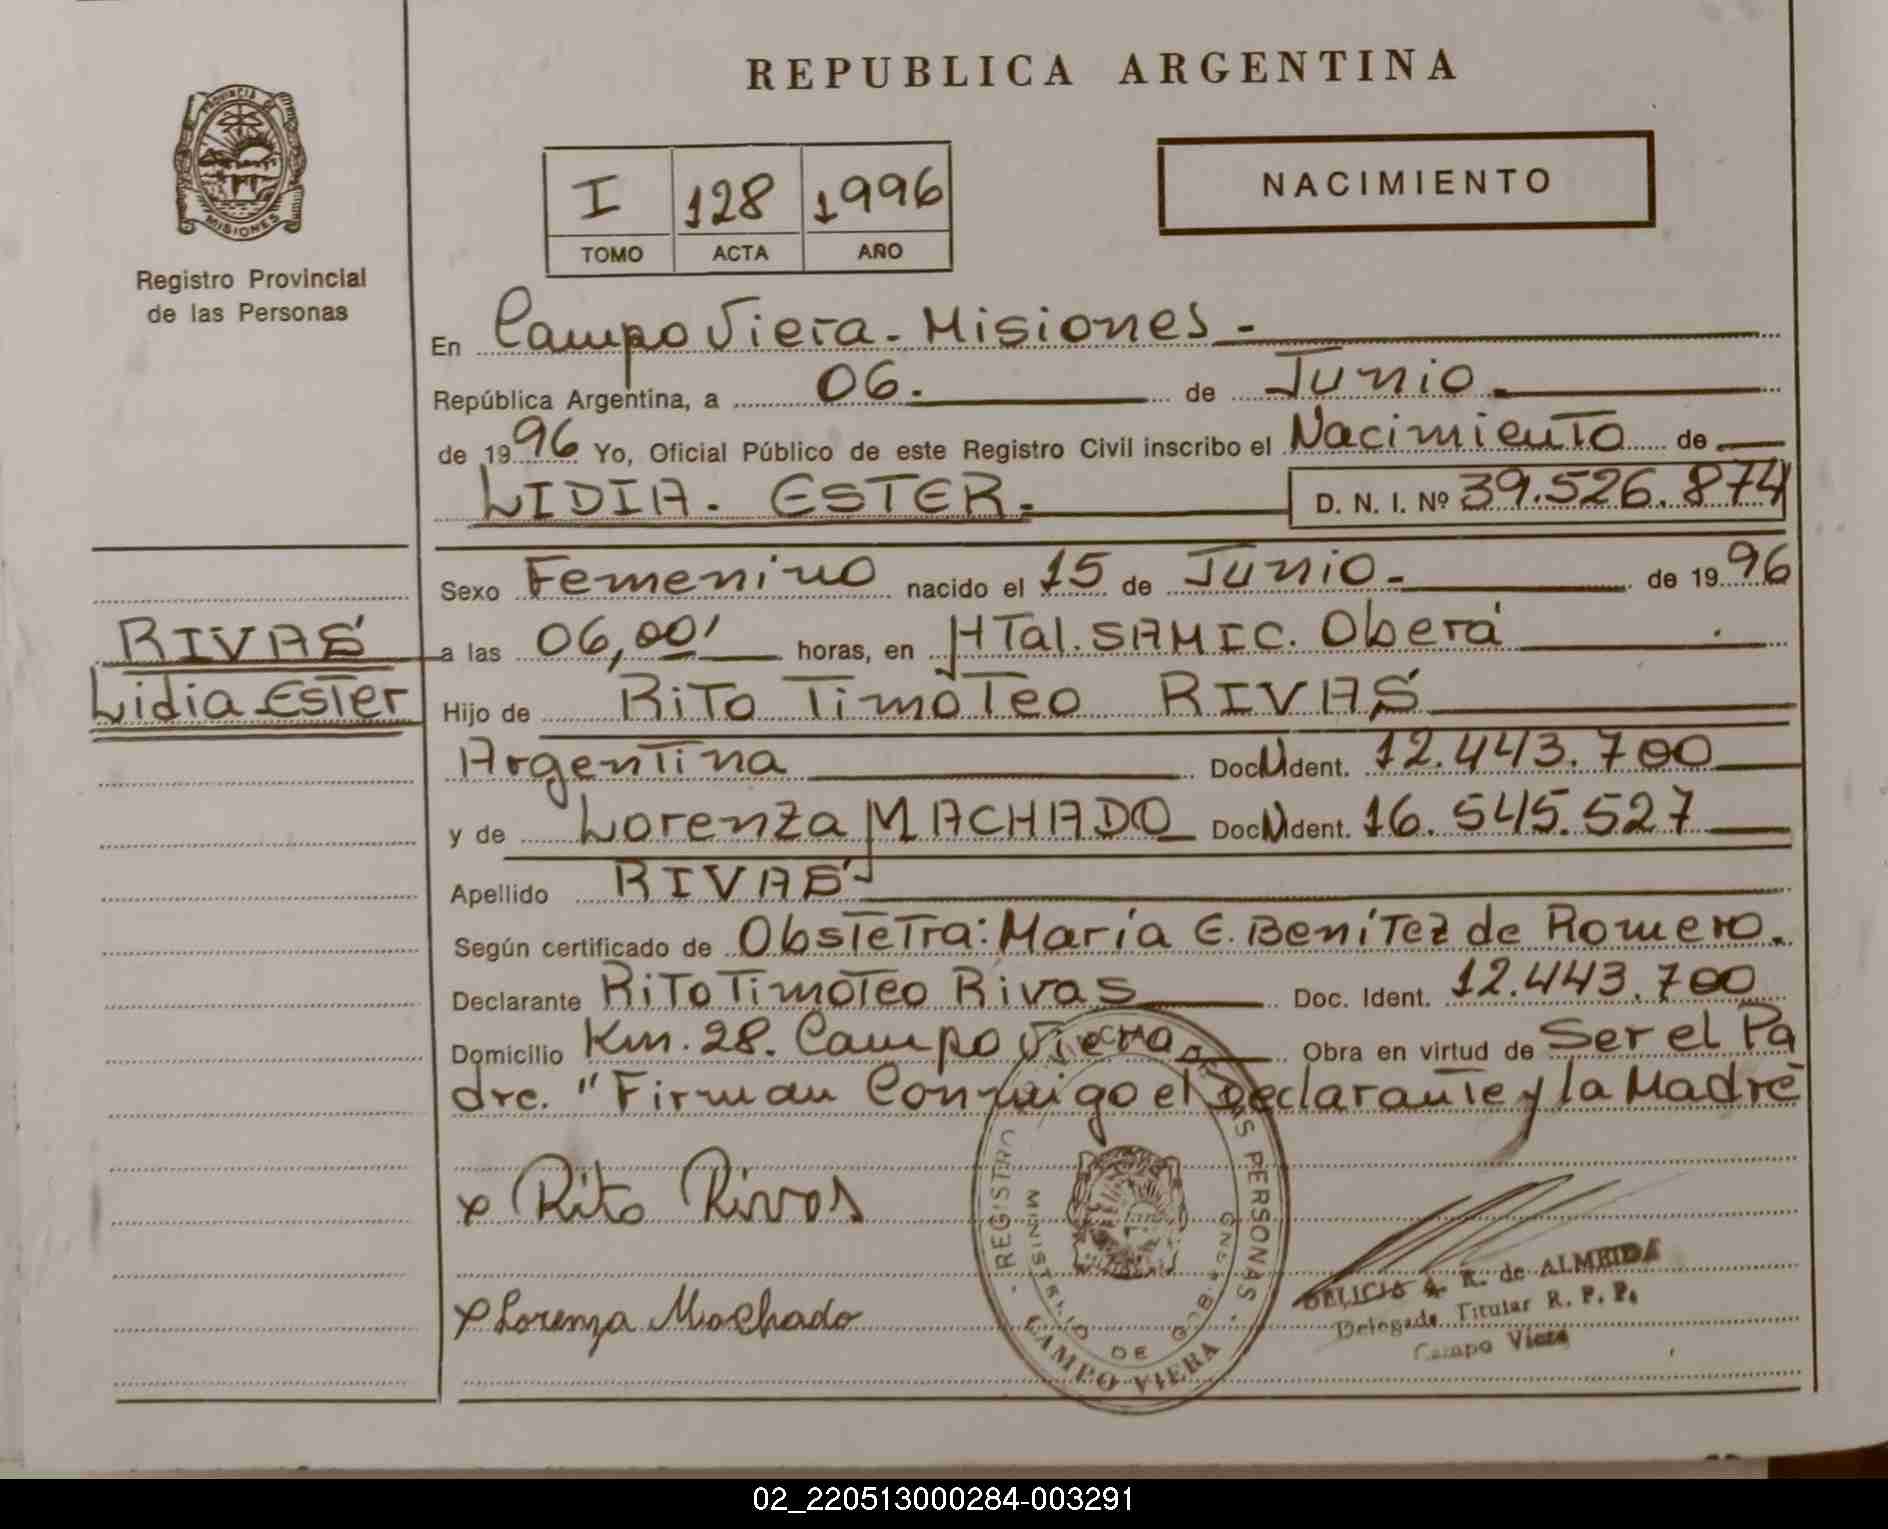 REPUBLICA ARGENTINA
PROVINCIA DE
MISIONES
Registro Provincial
de las Personas
I 128 1996
TOMO ACTA AÑO
NACIMIENTO
En Campo Viera - Misiones -
República Argentina, a 06. de Junio.
de 1996 Yo, Oficial Público de este Registro Civil inscribo el Nacimiento de
LIDIA. ESTER. D. N. I. Nº 39.526.874
Sexo Femenino nacido el 15 de Junio. de 1996
RIVAS
Lidia Ester
a las 06,00' horas, en HTal. SAMIC. Oberá
Hijo de Rito Timoteo RIVAS
Argentina Doc. Ident. 12.443.700
y de Lorenza MACHADO Doc. Ident. 16.545.527
Apellido RIVAS
Según certificado de Obstetra: María E. Benítez de Romero.
Declarante Rito Timoteo Rivas Doc. Ident. 12.443.700
Domicilio Km. 28. Campo Viera Obra en virtud de Ser el Pa
dre. "Firman Conmigo el Declarante y la Madre
x Rito Rivas
x Lorenza Machado
REGISTRO DE LAS PERSONAS
MINISTERIO DE GOB.
CAMPO VIERA
DELICIA A. R. de ALMEIDA
Delegada Titular R. P. P.
Campo Viera
02_220513000284-003291